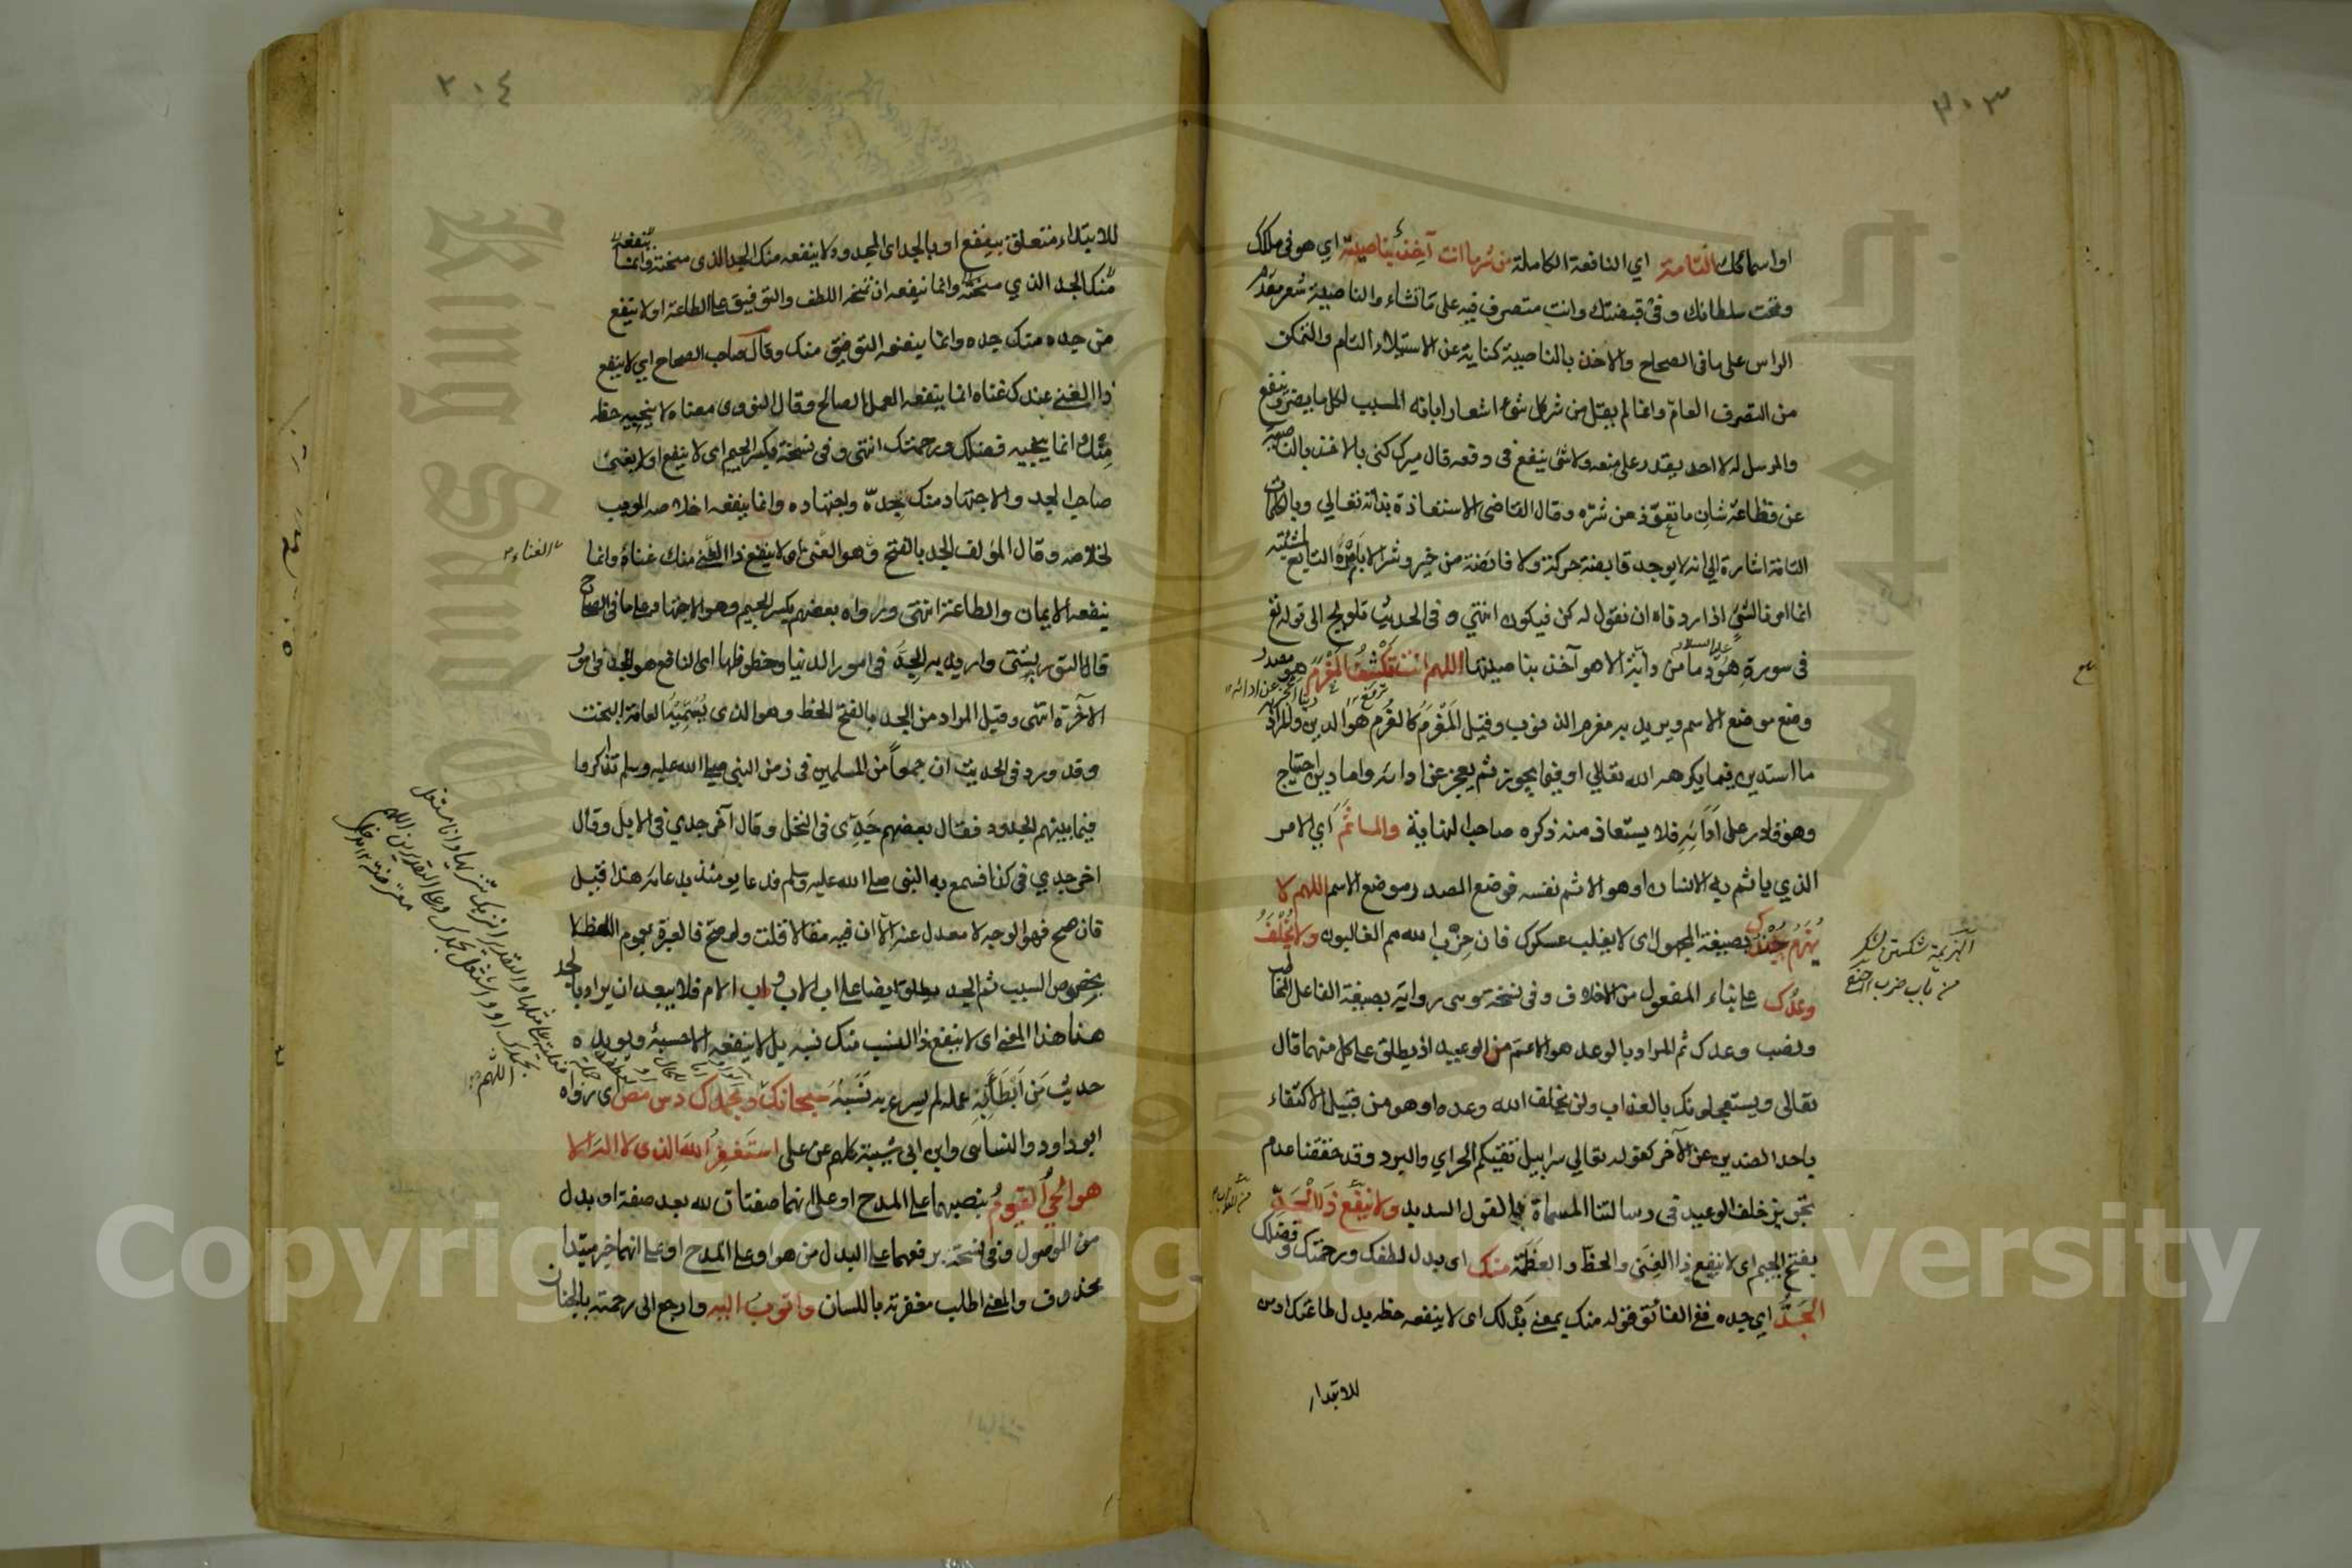 ٣٠٣
او اسمائك التامة اي النافعة الكاملة من شر ما انت آخذ بناصيته اي هو في ملكك
وتحت سلطانك وفي قبضتك وانت متصرف فيه على ما تشاء والناصية شعر مقدم
الراس على ما في الصحاح والاخذ بالناصية كناية عن الاستيلاء التام والتمكن
من التصرف العام وانما لم يقل من شر كل شئ اشعارا بانه المسبب لكل ما يضر وينفع
والمرسل له لا احد يقدر على منعه ولا شئ ينفع في دفعه قال ميرك كنى بالاخذ بالناصية
عن فظاعة شان ما تعوذ من شره وقال القاضي الاستعاذة بذاته تعالي وبالكلمات
التامة اشارة الي انه لا يوجد قابضة حركة ولا قابضة من خير وشر الا بامره التابع لمشيئته
انما امرنا لشئ اذا اردناه ان نقول له كن فيكون انتهي وفي الحديث تلويح الى قوله تع
في سورة هود عليه السلام ما من دابة الا هو آخذ بناصيتها اللهم انت تكشف المغرم هو مصدر
وضع موضع الاسم ويريد به مغرم الذنوب وقيل المغرم كالغرم هو الدين والمراد
ما استدين فيما يكرهه الله تعالي او فيما يجوز ثم يعجز عن ادائه واما دين احتاج
وهو قادر على ادائه فلا يستعاذ منه ذكره صاحب النهاية والماثم اي الامر
الذي ياثم به الانسان او هو الاثم نفسه فوضع المصدر موضع الاسم اللهم لا
يهزم جندك بصيغة المجهول اى لا يغلب عسكرك فان حزب الله هم الغالبون ولا يخلف
وعدك على بناء المفعول من الاخلاف وفي نسخة وهي رواية بصيغة الفاعل المخاطب
ونصب وعدك ثم المراد بالوعد هو الاعم من الوعيد اذ يطلق على كل منهما قال
تعالى ويستعجلونك بالعذاب ولن يخلف الله وعده او هو من قبيل الاكتفاء
باحد الضدين عن الآخر كقوله تعالي سرابيل تقيكم الحر اي والبرد وقد حققنا عدم
تجويز خلف الوعيد في رسالتنا المسماة بالقول السديد ولا ينفع ذا الجد
بفتح الجيم اى لا ينفع ذا الغنى والحظ والعظمة منك اى بدل لطفك ورحمتك وفضلك
الجد اي جده ففي الفائق قوله منك بمعنى بدلك اى لا ينفعه حظه بدل طاعتك او من
للابتداء
الهزيمة شكستن لشكر
من باب ضرب
٢٠٤
للابتداء متعلق بينفع او بالجد اى المجدود لا ينفعه منك الجد الذي منحته وانما ينفعه
منك الجد الذي منحته وانما ينفعه ان تمنحه اللطف والتوفيق على الطاعة او لا ينفع
من جده منك جده وانما ينفعه التوفيق منك وقال صاحب الصحاح اي لا ينفع
ذا الغنى عندك غناه انما ينفعه العمل الصالح وقال النووي معناه لا ينجيه حظه
منك وانما ينجيه فضلك ورحمتك انتهى وفي نسخة بكسر الجيم اى لا ينفع او لا يغني
صاحب الجد والاجتهاد منك بجده واجتهاده وانما ينفعه اخلاصه الموجب
لخلاصه وقال المؤلف الجد بالفتح وهو الغنى اى لا ينفع ذا الغنى منك غناه وانما
ينفعه الايمان والطاعة انتهى ورواه بعضهم بكسر الجيم وهو الاجتهاد على ما في الصحاح
قال التوربشتى واريد به الجد في امور الدنيا وحظوظها اى النافع هو الجد في امور
الآخرة انتهى وقيل المراد من الجد بالفتح الحظ وهو الذى يسميه العامة البخت
وقد ورد في الحديث ان جمعاً من المسلمين في زمن النبي صلى الله عليه وسلم تذاكروا
فيما بينهم الجدود فقال بعضهم جدى في النخل وقال آخر جدي في الابل وقال
اخر جدي في كذا فسمع به النبى صلى الله عليه وسلم فدعا يومئذ بدعائه هذا قيل
فان صح فهو الوجه لا معدل عنه الا ان فيه مقالا قلت ولو صح فالعبرة بعموم اللفظ لا
بخصوص السبب ثم الجد يطلق ايضا على اب الاب واب الام فلا يبعد ان يراد بالجد
هنا هذا المعنى اى لا ينفع ذا النسب منك نسبه بل لا ينفعه الا حسبه ويويده
حديث من ابطأ به عمله لم يسرع به نسبه سبحانك وبحمدك دس مص اى رواه
ابو داود والنسائى وابن ابى شيبة كلهم عن على استغفر الله الذى لا اله الا
هو الحي القيوم بنصبهما على المدح او على انهما صفتان لله بعد صفة او بدل
من الموصول وفي نسخة برفعهما على البدل من هو او على المدح او على انهما خبر مبتدا
محذوف والمعنى اطلب مغفرته باللسان واتوب اليه وارجع الى رحمته بالجنان
الغناء
اللهم
Copyright © King Saud University
King Saud University
1957